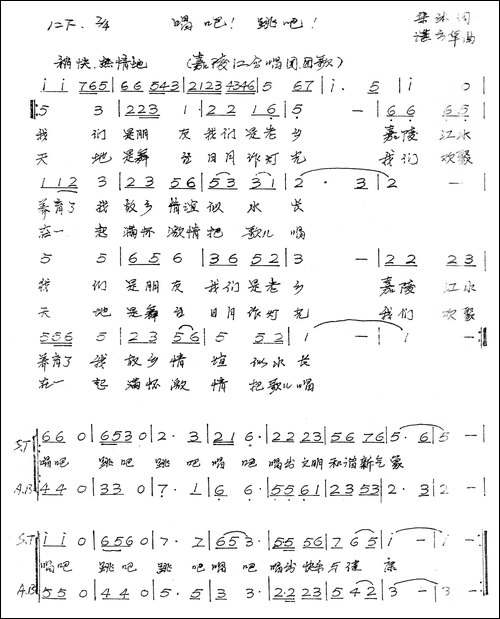 1=F 2/4 唱吧! 跳吧! 词
曲
稍快.热情地 (嘉陵江合唱团团歌)
i i 765 | 66 543 | 2123 4346 | 5 67 | i . 5 | i 0
5 3 | 223 1 | 2 2 16 | 5 - | 6 6 65
我 们 是朋 友 我们是老乡 嘉陵 江水
天 地 是舞 台 日月作灯光 我们 欢聚
112 3 | 23 56 | 53 31 | 2 · 3 | 2 -
养育了 我 故乡 情谊 似 水 长
在一 起 满怀 激情 把 歌儿 唱
5 5 | 65 6 | 36 52 | 3 - | 22 23
我 们 是朋 友 我们是老乡 嘉陵 江水
天 地 是舞 台 日月作灯光 我们 欢聚
556 5 | 23 56 | 5 52 | 1 - | 1 -
养育了 我 故乡 情 谊 似水 长
在一 起 满怀 激 情 把歌儿唱
S.T 66 0 | 653 0 | 2 · 3 | 21 6 · | 22 23 | 56 76 | 5 · 6 | 5 -
唱吧 跳吧 跳吧 唱吧 唱出文明和谐新气象
A.B 44 0 | 33 0 | 7 · 1 | 6 6 · | 55 61 | 23 53 | 2 · 3 | 2 -
S.T i i 0 | 656 0 | 7 · 7 | 65 3 · | 55 56 | 7 65 | i - | i -
唱吧 跳吧 跳吧 唱吧 唱出快乐与健 康
A.B 55 0 | 44 0 | 5 · 5 | 3 3 · | 2·2 23 | 5 42 | 3 - | 3 -